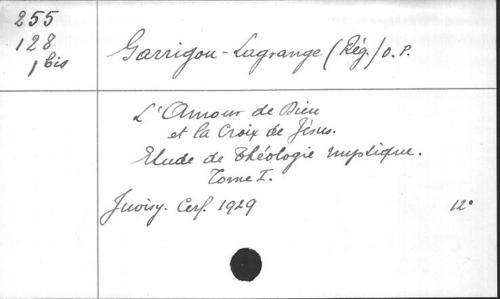 255
128
1 bis
Garrigou-Lagrange (Rég.) O.P.
L'Amour de Dieu
et la Croix de Jésus.
Etude de théologie mystique.
Tome I.
Juvisy. Cerf. 1929 12°